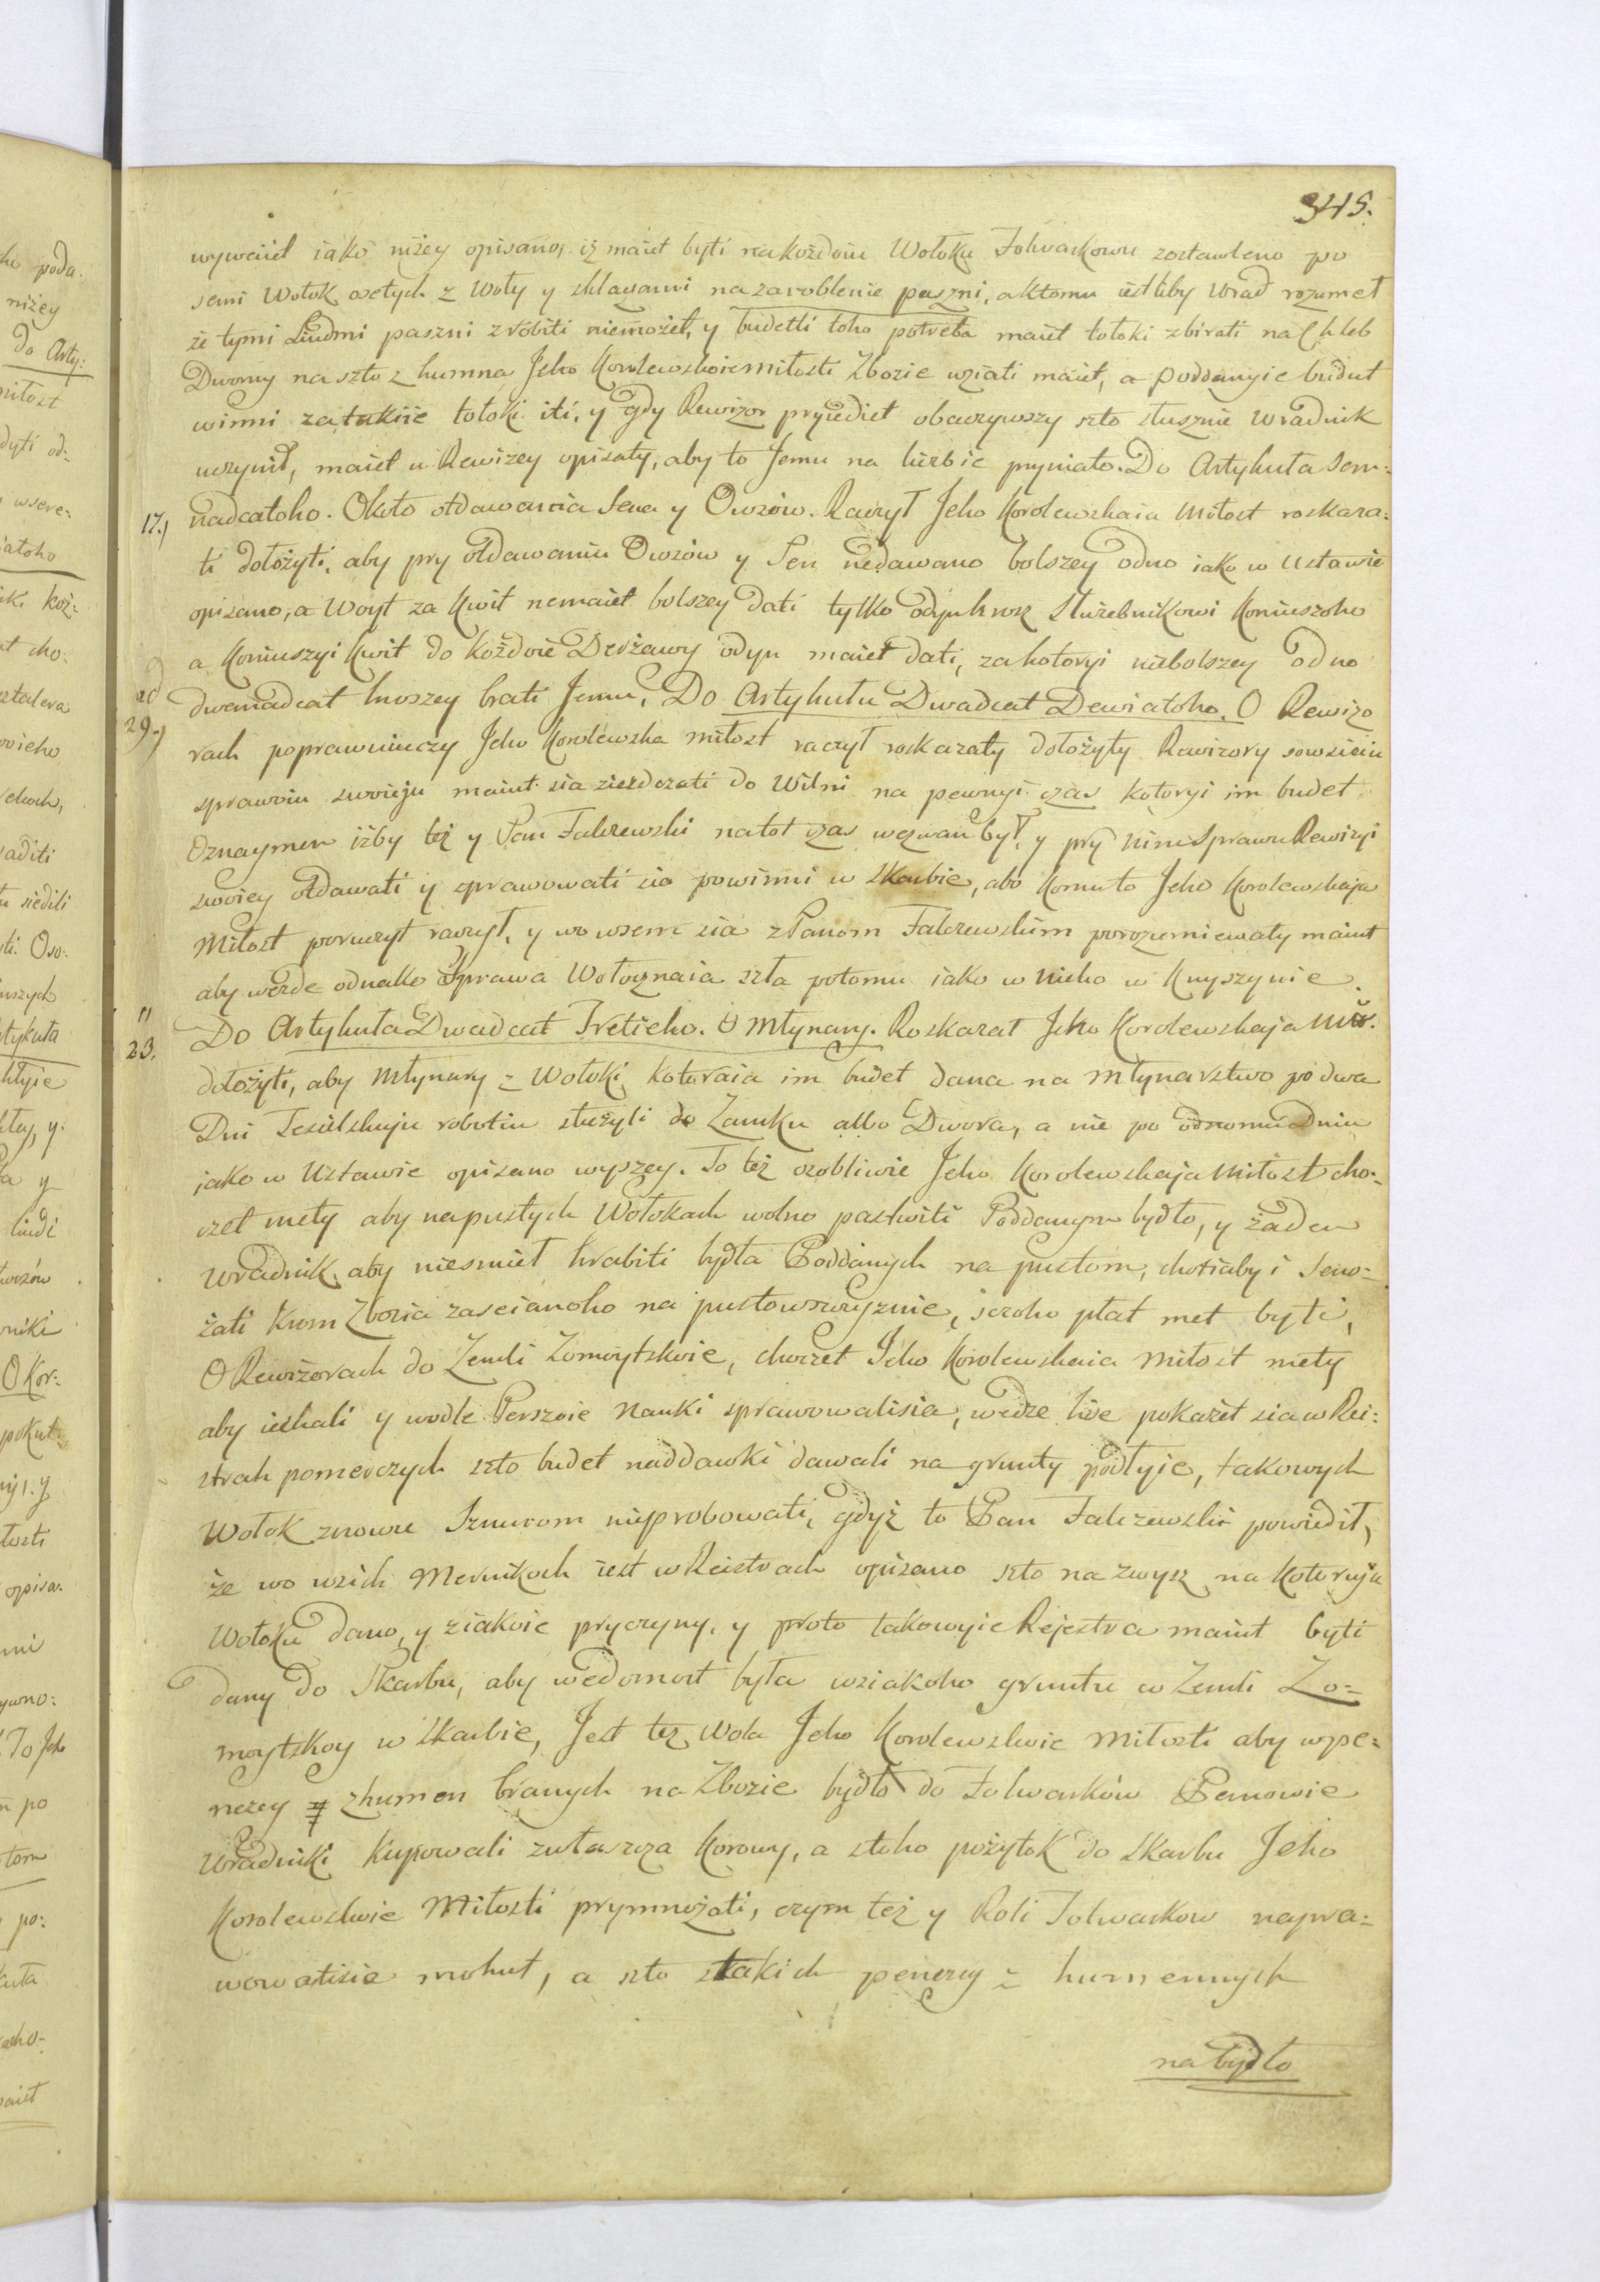 345.
wywaiet iako niżey opisano, iż maiet byti na każdoiu Wołoku Folwarkowu zostawleno po
semi Wołok osełych z Woły y Sklagami na zaroblenie paszni, a ktomu iestliby Wrad rozumeł
że tymi Liudmi paszni zrobiti niemożet, y budetli toho potreba maiet tołoki zbirati na Chleb
Dworny na szto z humna Jeho Korolewskoie miłosti Zbozie wziati maiet, a poddanyie budut
winni za takiie tołoki iti, y gdy Rewizor pryiediet obaczywszy szto słusznie Wradnik
uczynił, maiet u Rewizey opisaty, aby to Jemu na liczbie pryniato. Do Artykuła Sem-
17.) nadcatoho. Około otdawania Sena y Owsów. Raczył Jeho Korolewskaia Miłost roskaza-
ti dołożyti, aby pry otdawaniu Owsów y Sen nedawano bolszey odno iako w Ustawie
opisano, a Woyt za Kwit nemaiet bolszey dati tylko odyn hrosz Służebnikowi Koniuszoho
a Koniuszyi Kwit do Każdoie Derżawy odyn maiet dati, za kotoryi niebolszey odno
ad
29.) dwanadcat hroszey brati Jemu. Do Artykułu Dwadcat Dewiatoho. O Rewizo
rach poprawuiuczy Jeho Korolewska miłost raczył roskazaty dołożyty Rewizory sowsieiu
sprawoiu swoieju maiut sia zieżdczati do Wilni na pewnyi czas kotoryi im budet
Oznaymen iżby też y Pan Falczewski natot czas wezwan był, y pry nim Sprawu Rewizyi
swoiey otdawati y sprawowati sia powinni w Skarbie, abo Komuto Jeho Korolewskaja
Miłost poruczyt raczył, y wo wsem sia z Panom Falczewskim porozumiewaty maiut
aby wezde odnako Sprawa Wołocznaia szła potomu iako w nieho w Knyszynie.
23. Do Artykuła Dwadcat Tretieho. O Młynary. Roskazał Jeho Korolewskaja Mił.
dołożyti, aby Młynary z Wołoki kotoraia im budet dana na Młynarstwo po dwa
Dni Tesielskuju robotiu służyli do Zamku albo Dwora, a nie po odnomu Dniu
jako w Ustawie opisano wyszey. To też osobliwie Jeho Korolewskaja Miłost cho-
czet mety aby na pustych Wołokach wolno pastwiti Poddanym bydło, y żaden
Wradnik aby niesmieł hrabiti bydła Poddanych na pustom, chotiaby i Seno-
żati Krom Zbozia zasieianoho na pustowszczyznie, s czoho płat met byti,
O Rewizorach do Zemli Zomoytskoie, choczet Jeho Korolewskaia Miłost mety
aby iechali y wodle Perszoie Nauki sprawowalisia, wedze hde pokażet sia w Rei-
strah pomerczych szto budet naddawki dawali na grunty podłyie, takowych
Wołok znowu Sznurom nieprobowati, gdyż to Pan Falczewski powiedił,
że wo wsich Mernikoch iest w Reistrach opisano szto na zwysz na kotoruju
Wołoku dano, y z iakoie pryczyny, y proto takowyie Rejestra maiut byti
dany do Skarbu, aby wedomost była wsiakoho gruntu w Zemli Żo-
moytskoy w Skarbie, Jest też Wola Jeho Korolewskoie Miłosti aby w pe-
nezey z humen branych na Zbozie bydło do Folwarków Panowie
Wradniki Kupowali zwłaszcza Korowy, a stoho pożytok do Skarbu Jeho
Korolewskoie Miłosti prymnożati, czym też y Roli Folwarkow napra-
wowatisie mohut, a szto stakich penezey z humennych
na bydło